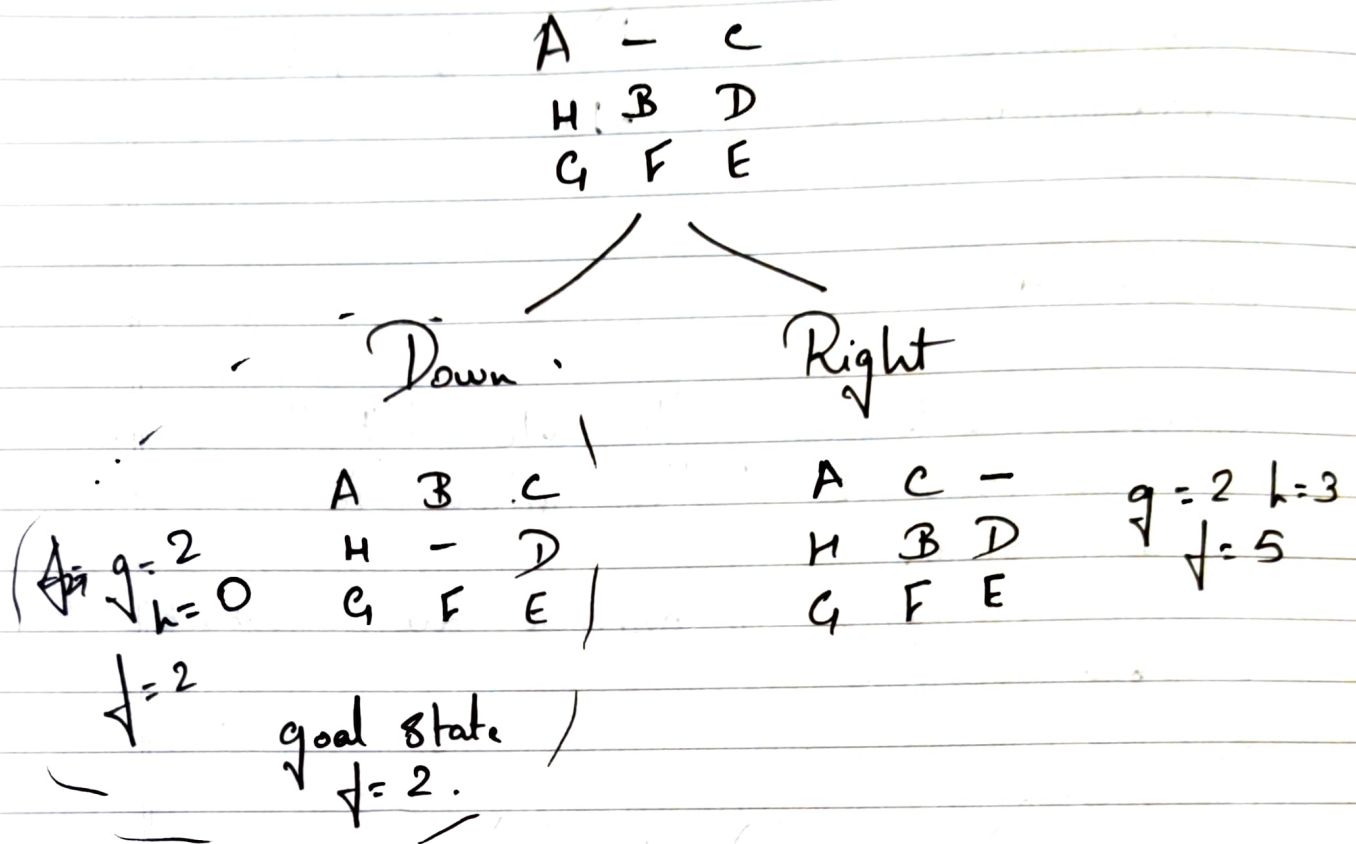 A - C
H B D
G F E
Down Right
A B C
H - D
G F E
g = 2
h = 0
f = 2
goal state
f = 2.
A C -
H B D
G F E
g = 2 h = 3
f = 5